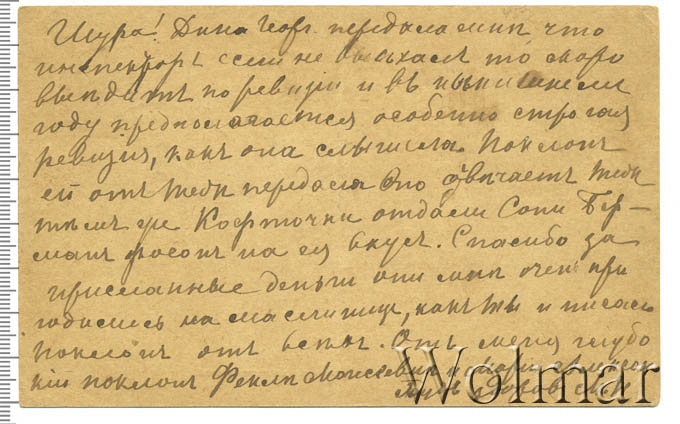 Шура! Дина Георг. передала мнѣ что
инспекторъ если не выѣхалъ то скоро
выѣдитъ по ревизии и въ нынѣшнемъ
году предпологается особенно строгая
ревизия, какъ она слышала. Поклонъ
ей отъ тебя передала Она отвѣчаетъ тебѣ
тѣмъ же Кофточки отдали Сони Бер-
манъ фосонъ на ея вкусъ. Спасибо за
присланные деньги они мнѣ очень при
годились на маслиницу, какъ ты и писалъ
поклонъ отъ всѣхъ. Отъ меня глубо
кій поклонъ Феклѣ Моисеевнѣ
Wolmar